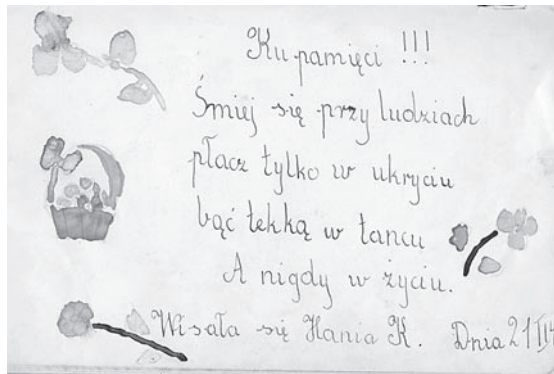 Ku pamięci !!!
Śmiej się przy ludziach
płacz tylko w ukryciu
bąć łekką w tancu
A nigdy w życiu.
Wisała się Hania K. Dnia 21